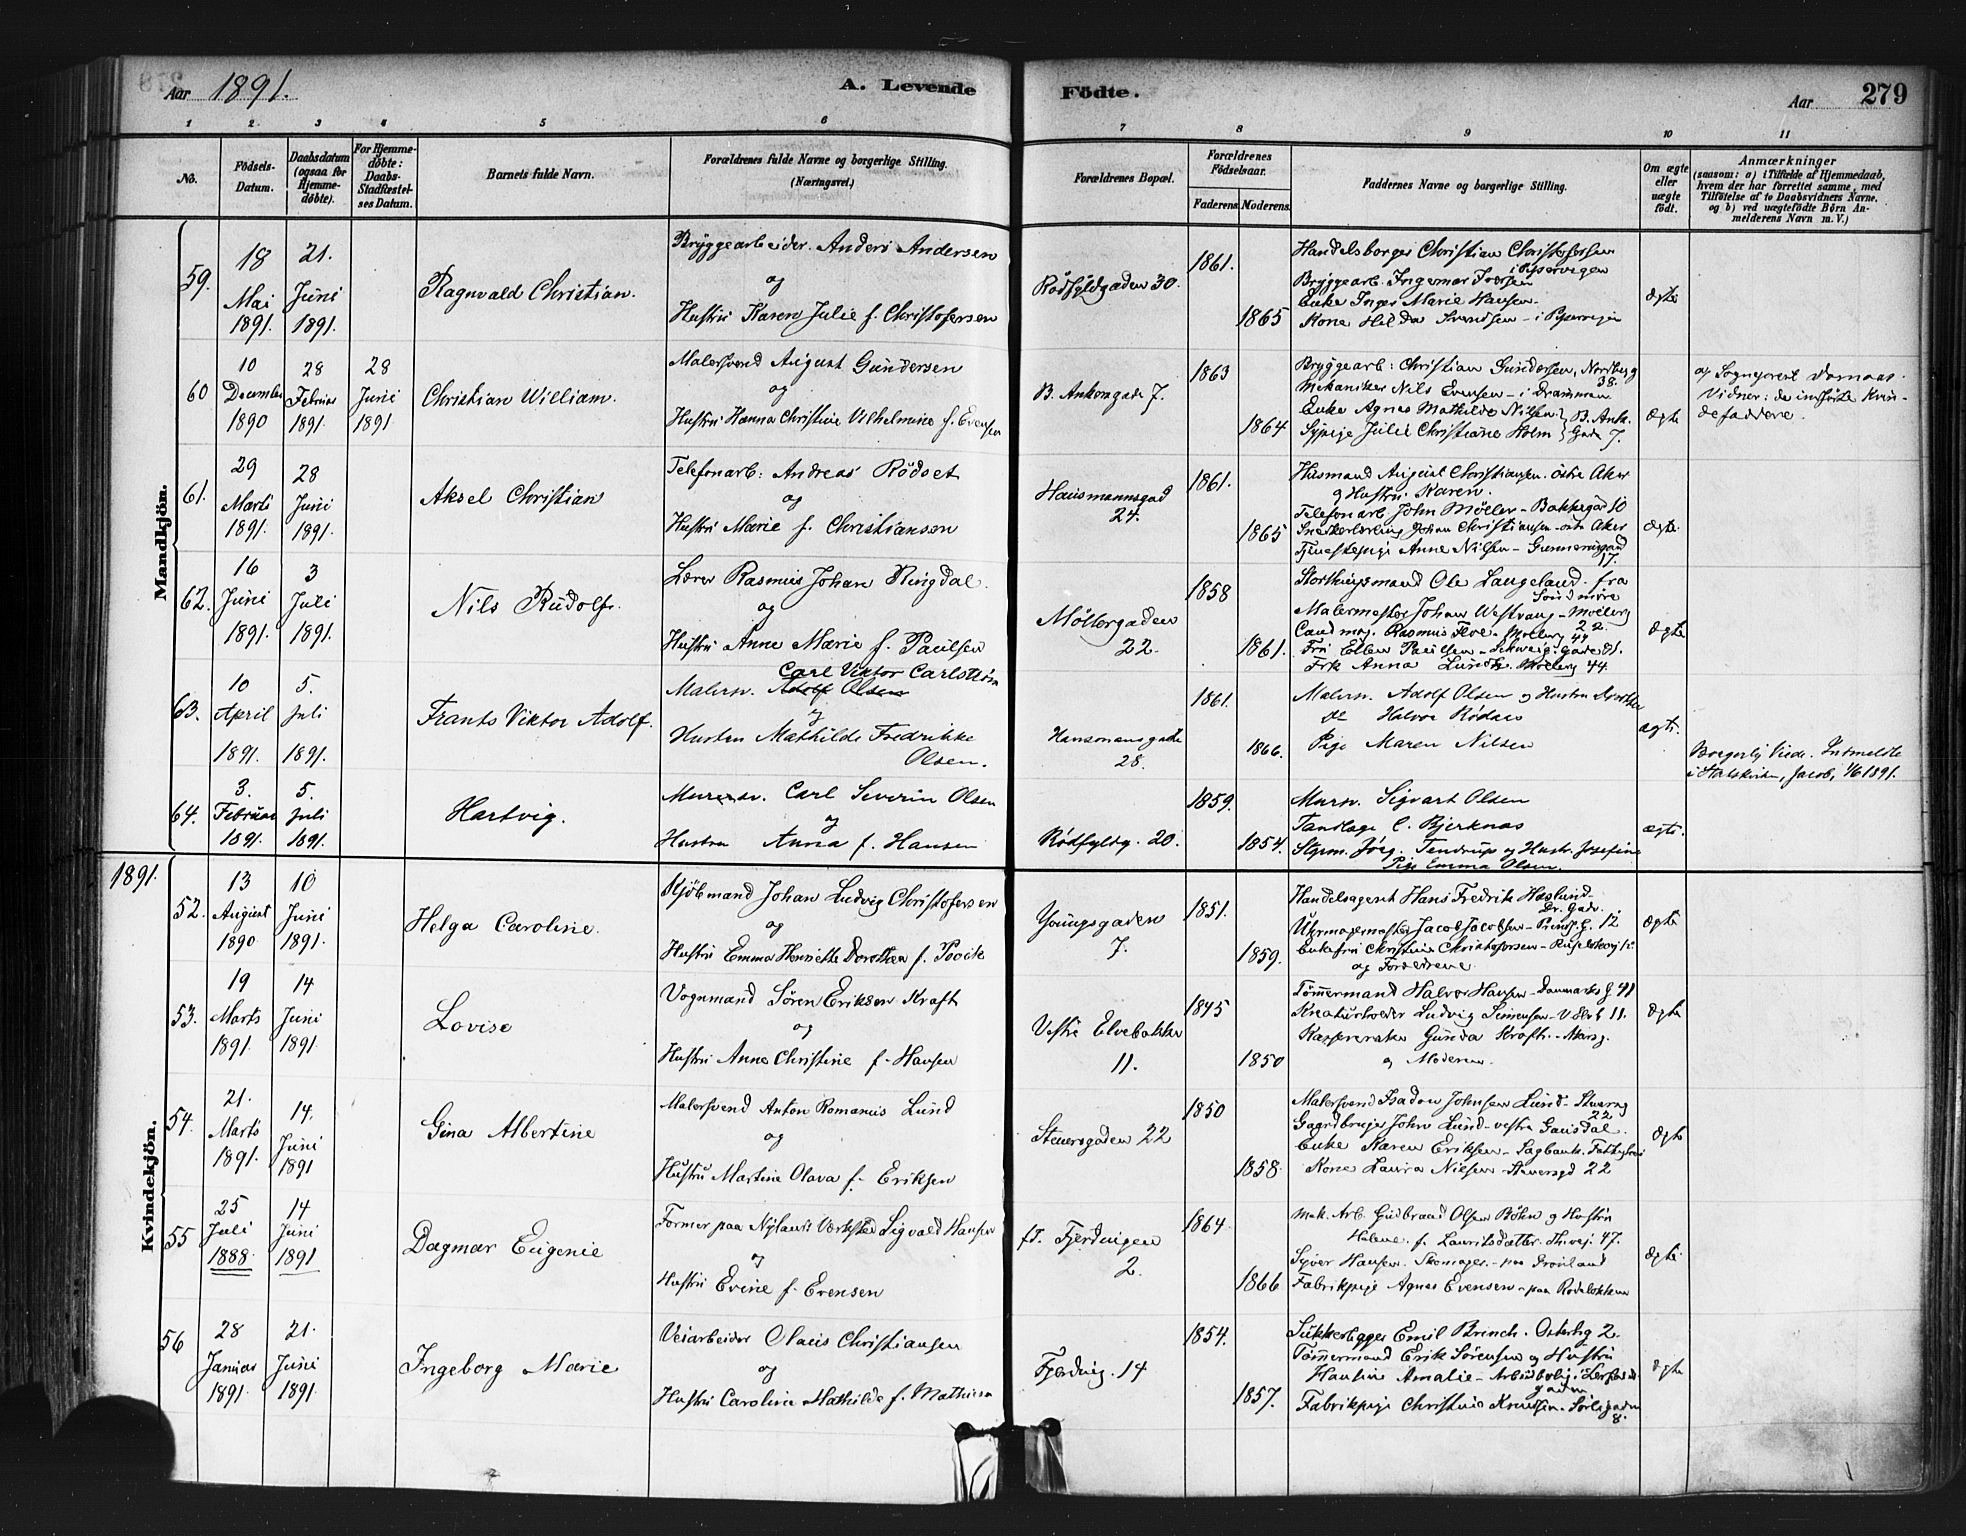 Aar 1891.
A. Levende Födte.
Aar
279
1 2 3 4 5 6 7 8 9 10 11
No.
Födsels-Datum.
Daabsdatum (ogsaa for Hjemme-döbte).
For Hjemme-döbte: Daabs-Stadfæstel-ses Datum.
Barnets fulde Navn.
Forældrenes fulde Navne og borgerlige Stilling. (Næringsvei.)
Forældrenes Bopæl.
Forældrenes Födselsaar.
Faderens. Moderens.
Faddernes Navne og borgerlige Stilling.
Om ægte eller uægte födt.
Anmærkninger
(saasom: a) i Tilfælde af Hjemmedaab, hvem der har forrettet samme, med Tilföielse af to Daabsvidners Navne. og b) ved uægtefödte Börn An-melderens Navn m. V.)
Mandkjön.
59.
18 Mai 1891.
21. Juni 1891.
Ragnvald Christian.
Bryggearbeider Anders Andersen
og
Hustru Karen Julie f. Christofersen
Rödfyldgaden 30.
1861.
1865
Handelsborger Christian Christofersen
Bryggearb. Ingemar Iversen
Enke Inger Marie Hansen
Kone Hilda Svendsen
ægte
60
10 December 1890
28 Februar 1891.
28 Juni 1891
Christian William.
Malersvend August Gundersen
og
Hustru Hanna Christine Vilhelmine f. Evensen
B. Ankersgade 7.
1863
1864
Bryggearb: Christian Gundersen, Nordbyg 38.
Mekaniker Nils Evensen - i Drammen
Enke Agnes Mathilde Nilsen } B. Ank.
Sypige Julie Christiane Holm } Gade 7.
ægte
af Sogneprest
Vidner: de indförte Kvin-
defaddere.
61.
29 Marts 1891.
28 Juni 1891.
Aksel Christian
Telefonarb: Andreas Rödset
og
Hustru Marie f. Christiansen
Hausmannsgad 24.
1861.
1865
Husmand August Christiansen. östre Aker
og Hustru Karen.
Telefonarb. John Möller - Bakkegad 10
Snedkerlærling Johan Christiansen - östre Aker
Tjenestepige Anne Nilsen - 17.
ægte
62.
16 Juni 1891.
3 Juli 1891.
Nils Rudolf.
Lærer Rasmus Johan Ringdal
og
Hustru Anne Marie f. Paulsen
Möllergaden 22.
1858
1861.
Storthingsmand Ole Langeland. fra Söndmöre
Malermester Johan Westvang - Möllerg 22.
Cand mag. Rasmus Floe - Möllerg 44
Fru Ellen Paulsen - Schweigs.gade 81.
Frk Anna Lund. Möllerg 44.
ægte
63.
10 April 1891.
5. Juli 1891.
Frants Viktor Adolf.
Carl Viktor Carlström
Malersv. Adolf Olsen
og
Hustru Mathilde Fredrikke Olsen.
Hausmansgade 28.
1861.
1866.
Malersv. Adolf Olsen og Hustru Dorthea
do Halvor Rödsen
Pige Maren Nilsen
ægte.
Borgerlig Viede. Indmeldte
i Statskirken, Jacob, 1/6 1891.
64.
3. Februar 1891.
5. Juli 1891.
Hartvig.
Murersv. Carl Severin Olsen
og
Hustru Anna f. Hansen
Rödfyldg. 20.
1859.
1854.
Mursv. Sigvart Olsen
Tandlæge C. Bjerknæs
Styrm. Jörg. Tendrup og Hustr. Josefine
Pige Emma Olsen.
ægte.
1891.
Kvindekjön.
52.
13 August 1890
10 Juni 1891.
Helga Caroline.
Kjöbmand Johan Ludvig Christofersen
og
Hustru Emma Henriette Dorothea f.
Youngsgaden 7.
1851.
1859.
Handelsagent Hans Fredrik Haslund
Uhrmagermester Jacob Jacobsen - Prinds. G. 12
Enkefru Christine Christofersen
og Forældrene
ægte
53.
19 Marts 1891.
14 Juni 1891
Lovise
Vognmand Sören Eriksen Kraft
og
Hustru Anne Christine f. Hansen
Vestre Elvebakke 11.
1845
1850
Tömmermand Halvor Hansen - Danmarks G. 41
Kreaturhandler Ludvig Simensen - V. Elvb 11.
Gunda Kraft
og Moderen
ægte
54.
21. Marts 1891.
14. Juni 1891
Gina Albertine
Malersvend Anton Romanus Lund
og
Hustru Martine Olava f. Eriksen
Steenersgaden 22
1850
1858.
Malersvend Isadon Johnsen Lund - Steenersg 22
Gaardbruger John Lund - vestre Gausdal.
Enke Karen Eriksen - Sagbanken
Kone Laura Nilsen - Steenersgd 22
ægte
55
25 Juli 1888.
14 Juni 1891
Dagmar Eugenie
Former paa Nylands Værksted Sigvald Hansen
og
Hustru Evine f. Evensen
st. Fjerdingen 2.
1864.
1866
Mek. Arb. Gudbrand Olsen Böhn og Hustru
Helene f. Lauritsdatter. Thvej. 47.
Syver Hansen. Skomager. - paa Grönland
Fabrikpige Agnes Evensen - paa Rodelökken
ægte
56
28 Januar 1891.
21. Juni 1891.
Ingeborg Marie
Veiarbeider Olaus Christiansen
og
Hustru Caroline Mathilde f. Mathisen
Fjerding. 14
1854.
1857.
Sukkerlægger Emil Brinch. Osterhg 2.
Tömmermand Erik Sörensen og Hustru
Hansine Amalie
Fabrikpige Christine Knudsen. Sörligaden 8.
ægte